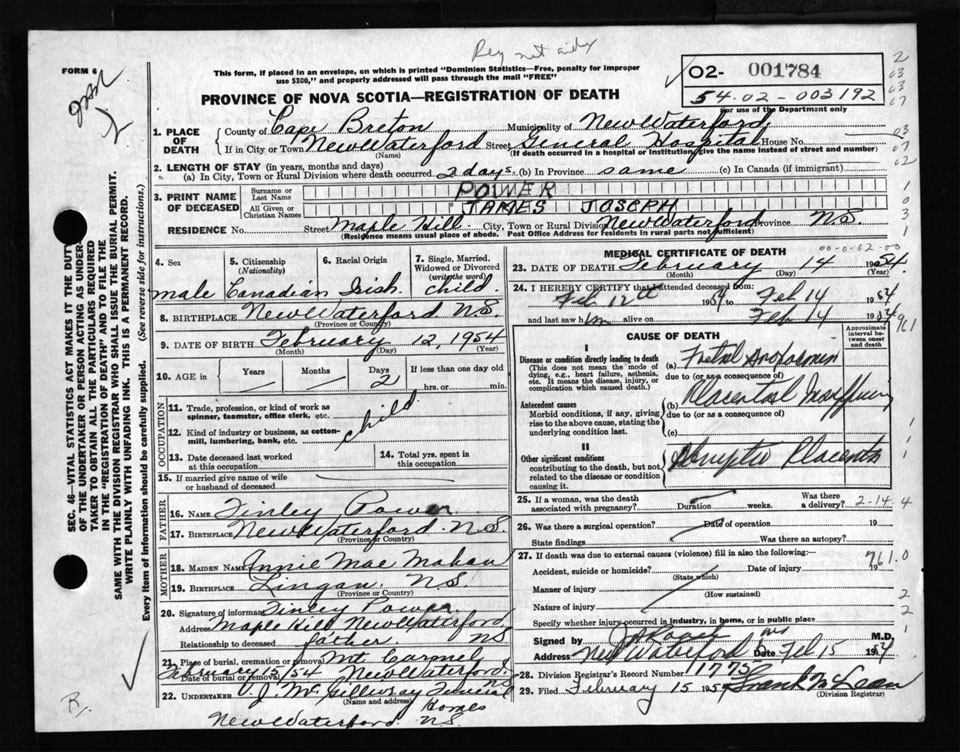 FORM 6
This form, if placed in an envelope, on which is printed "Dominion Statistics—Free, penalty for improper
use $300," and properly addressed will pass through the mail "FREE"
02- 001784
54-02-003192
For use of the Department only
PROVINCE OF NOVA SCOTIA—REGISTRATION OF DEATH
SEC. 46—VITAL STATISTICS ACT MAKES IT THE DUTY
OF THE UNDERTAKER OR PERSON ACTING AS UNDER-
TAKER TO OBTAIN ALL THE PARTICULARS REQUIRED
IN THE "REGISTRATION OF DEATH" AND TO FILE THE
SAME WITH THE DIVISION REGISTRAR WHO SHALL ISSUE THE BURIAL PERMIT.
WRITE PLAINLY WITH UNFADING INK. THIS IS A PERMANENT RECORD.
Every item of information should be carefully supplied. (See reverse side for instructions.)
1. PLACE OF DEATH County of Cape Breton Municipality of New Waterford
If in City or Town New Waterford Street General Hospital House No.
(Name) (If death occurred in a hospital or institution, give the name instead of street and number)
2. LENGTH OF STAY (in years, months and days)
(a) In City, Town or Rural Division where death occurred 2 days (b) In Province same (c) In Canada (if immigrant)
3. PRINT NAME OF DECEASED Surname or Last Name POWER
All Given or Christian Names JAMES JOSEPH
RESIDENCE No. Street Maple Hill City, Town or Rural Division New Waterford Province N.S.
(Residence means usual place of abode. Post Office Address for residents in rural parts not sufficient)
4. Sex male
5. Citizenship (Nationality) Canadian
6. Racial Origin Irish
7. Single, Married, Widowed or Divorced (write the word) child
8. BIRTHPLACE New Waterford N.S.
(Province or Country)
9. DATE OF BIRTH February 12, 1954
(Month) (Day) (Year)
10. AGE in Years Months Days 2 If less than one day old
hrs. or min.
OCCUPATION
11. Trade, profession, or kind of work as
spinner, teamster, office clerk, etc. child
12. Kind of industry or business, as cotton-
mill, lumbering, bank, etc.
13. Date deceased last worked
at this occupation
14. Total yrs. spent in
this occupation
15. If married give name of wife
or husband of deceased
FATHER
16. NAME Finley Power
17. BIRTHPLACE New Waterford N.S.
(Province or Country)
MOTHER
18. MAIDEN NAME Annie Mae Mahon
19. BIRTHPLACE Lingan N.S.
(Province or Country)
20. Signature of informant Finley Power
Address Maple Hill New Waterford
Relationship to deceased father NS
21. Place of burial, cremation or removal Mt Carmel
Date of burial or removal February 15/54 New Waterford NS
22. UNDERTAKER V. J. McGillivray Funeral
(Name and address) Homes
New Waterford N.S.
MEDICAL CERTIFICATE OF DEATH
23. DATE OF DEATH February 14 1954
(Month) (Day) (Year)
24. I HEREBY CERTIFY that I attended deceased from:
Feb 12th 1954 Feb 14 1954
and last saw him alive on Feb 14 1954
CAUSE OF DEATH
Approximate interval between onset and death
I
Disease or condition directly leading to death
(This does not mean the mode of dying, e.g., heart failure, asthenia, etc. It means the disease, injury, or complication which caused death.)
(a) Foetal
due to (or as a consequence of)
Antecedent causes
Morbid conditions, if any, giving rise to the above cause, stating the underlying condition last.
(b) Placental
due to (or as a consequence of)
(c)
II
Other significant conditions
contributing to the death, but not related to the disease or condition causing it.
Abruptio Placenta
25. If a woman, was the death
associated with pregnancy? Duration weeks. Was there a delivery? 2-14-4
26. Was there a surgical operation? Date of operation 19
State findings Was there an autopsy?
27. If death was due to external causes (violence) fill in also the following:
Accident, suicide or homicide? (State which) Date of injury 19
761.0
Manner of injury (How sustained)
Nature of injury
Specify whether injury occurred in industry, in home, or in public place
Signed by M.D.
Address New Waterford Date Feb 15 1954
28. Division Registrar's Record Number 1775
29. Filed February 15 1954 Frank McLean
(Division Registrar)